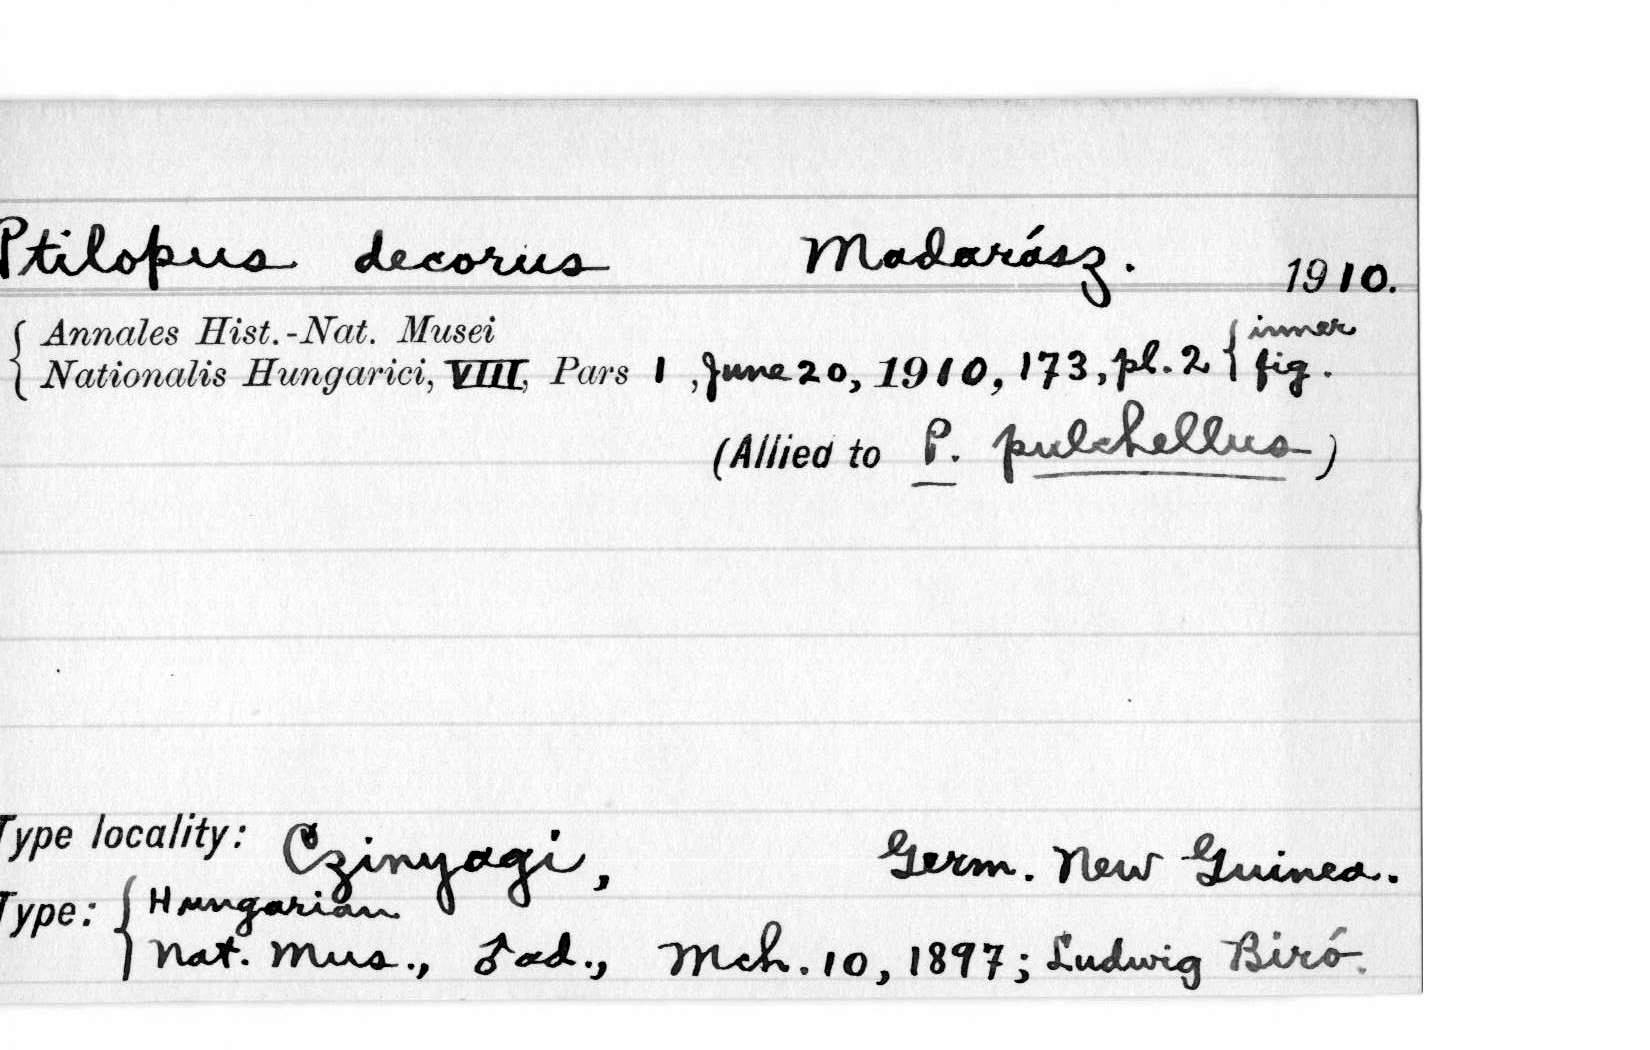 Ptilopus decorus Madarász. 1910.
{ Annales Hist.-Nat. Musei { inner
Nationalis Hungarici, VIII, Pars 1, June 20, 1910, 173, pl. 2 fig.
(Allied to P. pulchellus)
Type locality: Czinyagi, Germ. New Guinea.
Type: { Hungarian
Nat. Mus., ♂ ad., Mch. 10, 1897; Ludwig Biró.